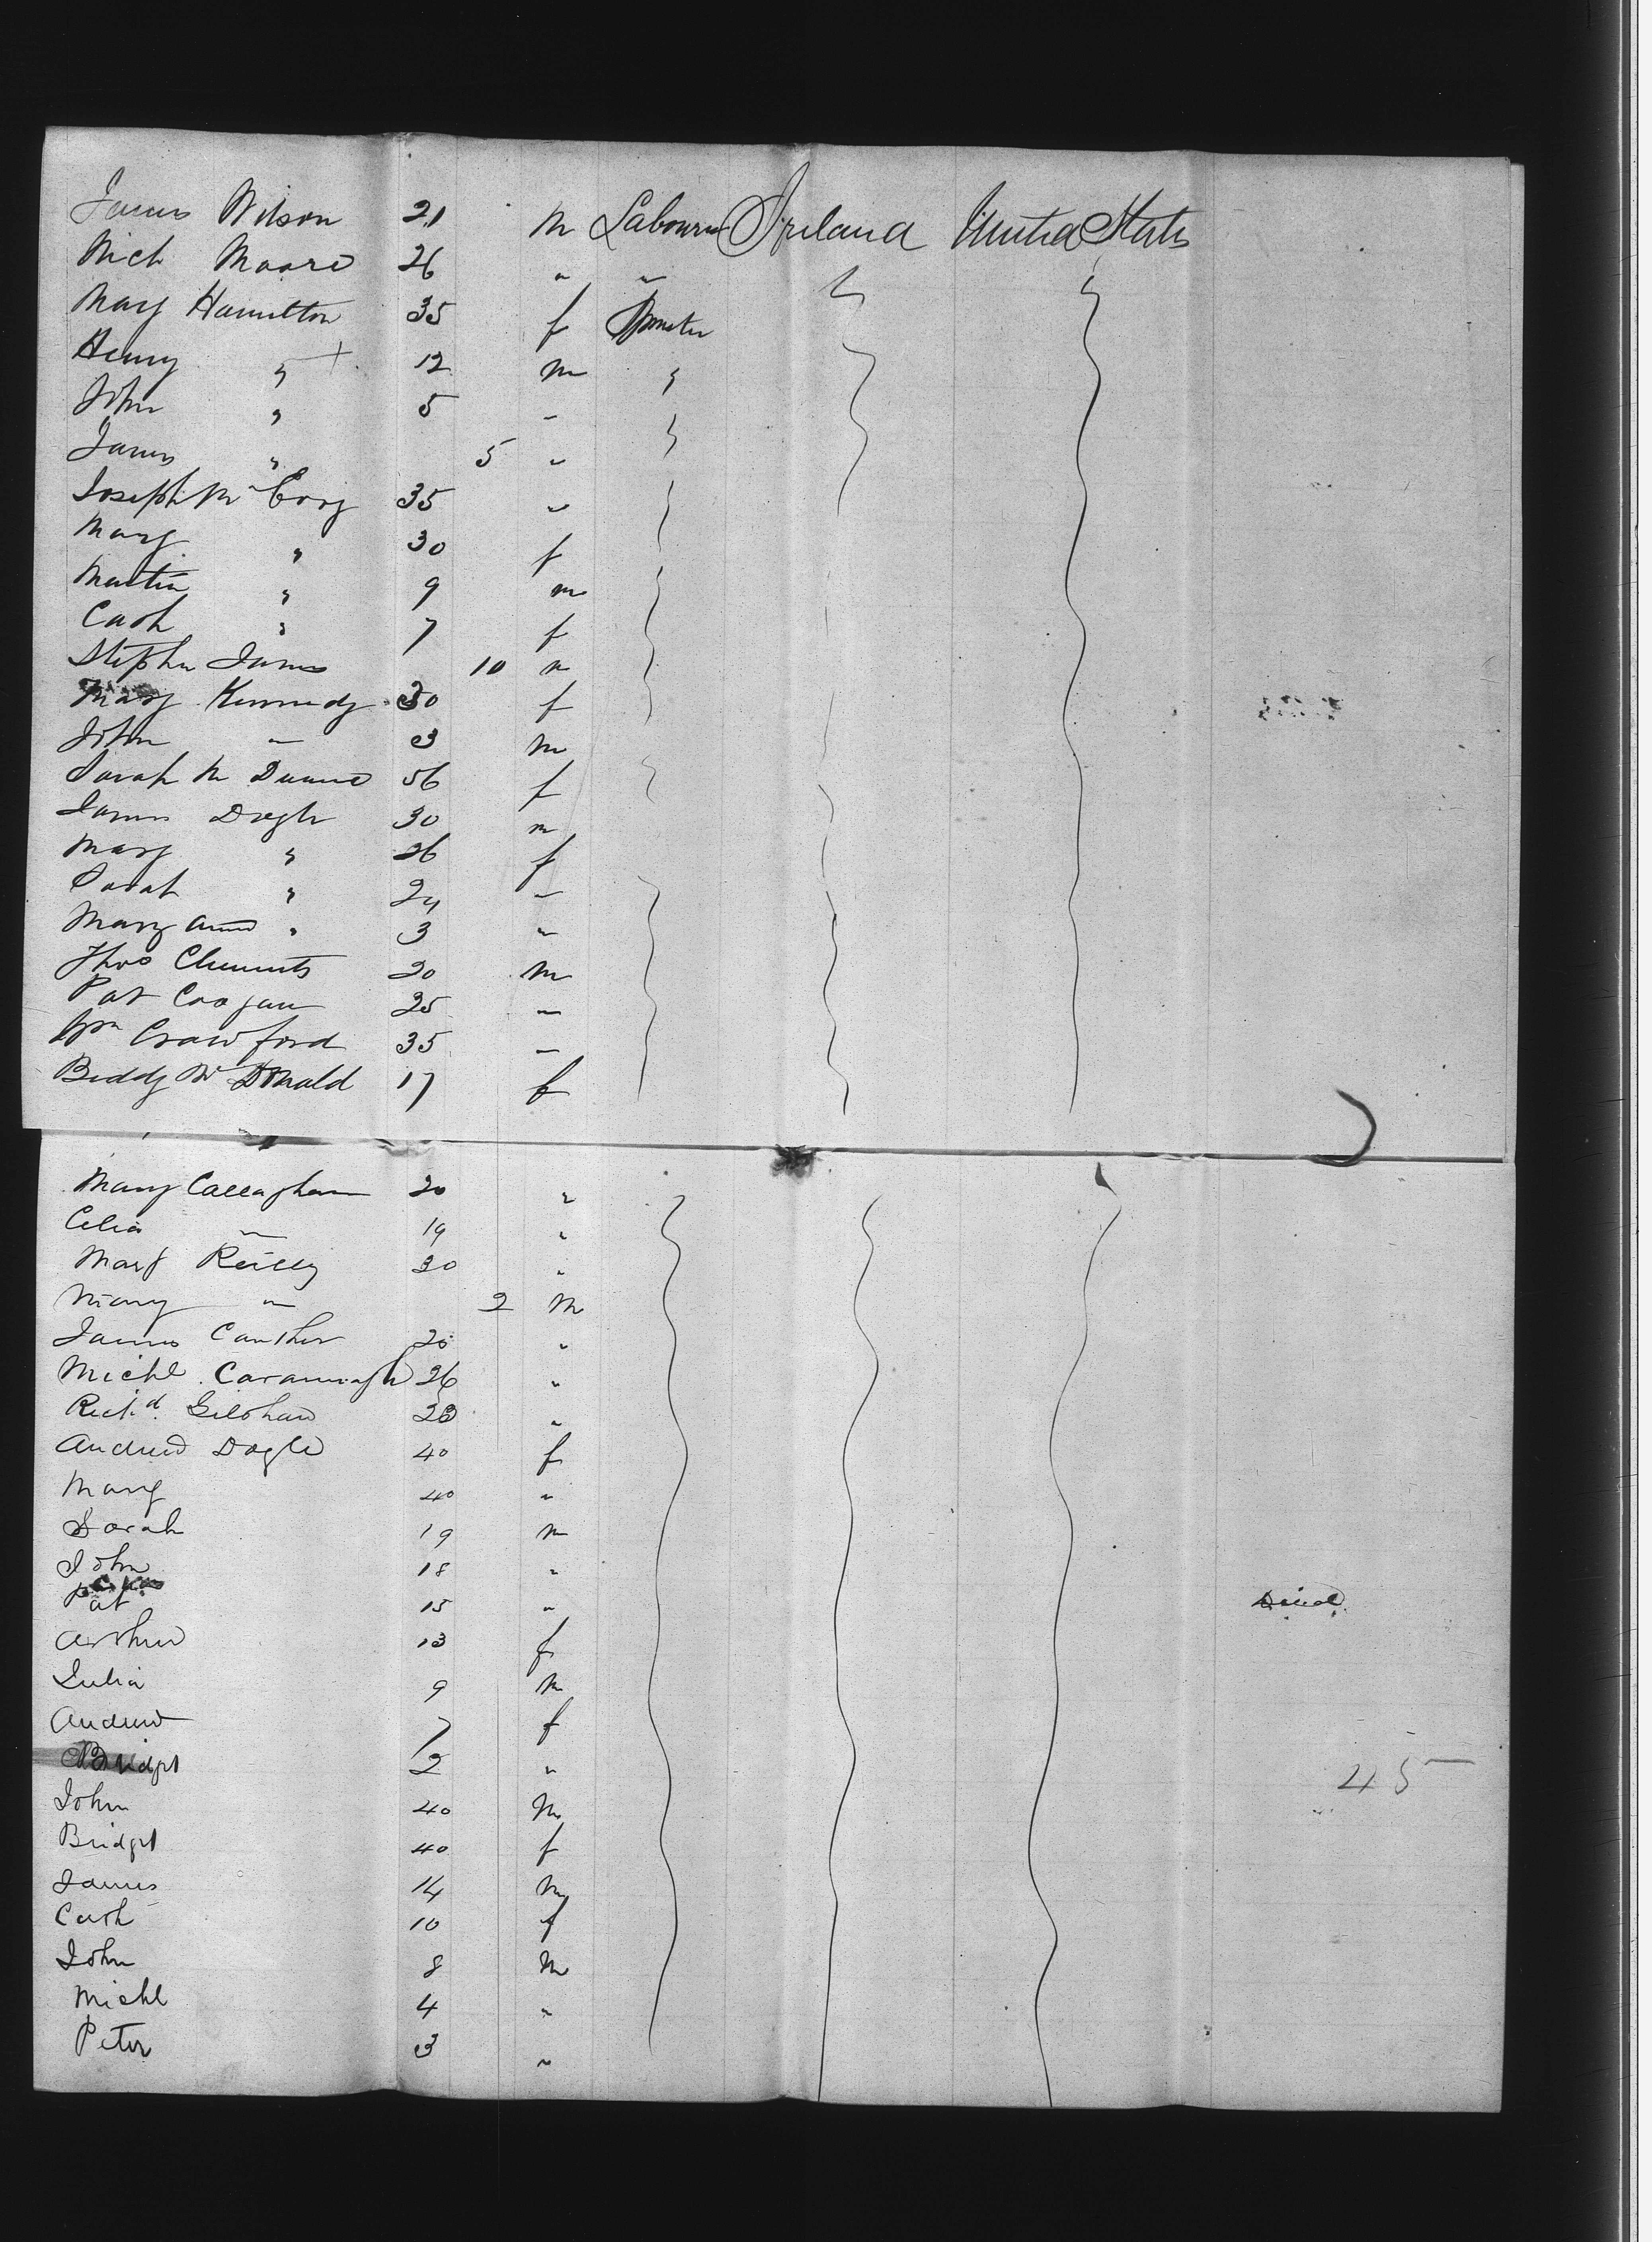 James Wilson 21 m Labourer Ireland United States
Mich Moore 26 " "
Mary Hamilton 35 f Spinster
Henry " + 12 m "
John " 5 "
James " 5 "
Joseph Mc Coog 35 "
Mary " 30 f
Martin " 9 m
Cath " 7 f
Stephen James 10 m
Mary Kennedy 30 f
John " 3 m
Sarah Mc 56 f
James 30 m
Mary " 26 f
Sarah " 24 "
Mary Ann " 3 "
Thos Clements 20 m
Pat Coogan 25 "
Wm Crawford 35 "
Biddy Mc Donald 17 f
Mary Callaghan 20 "
Celia " 19 "
Mary Reilly 30 "
Mary " 2 m
James 20 "
Michl Cavannagh 26 "
Richd "
Andrew Doyle 40 f
Mary 40 "
Sarah 19 m
John 18 "
Pat 15 "
Arthur 13 f
Julia 9 m
Andrew 7 f
Bridgt 2 " 45
John 40 m
Bridgt 40 f
James 14 m
Cath 10 f
John 8 m
Michl 4 "
Peter 3 "